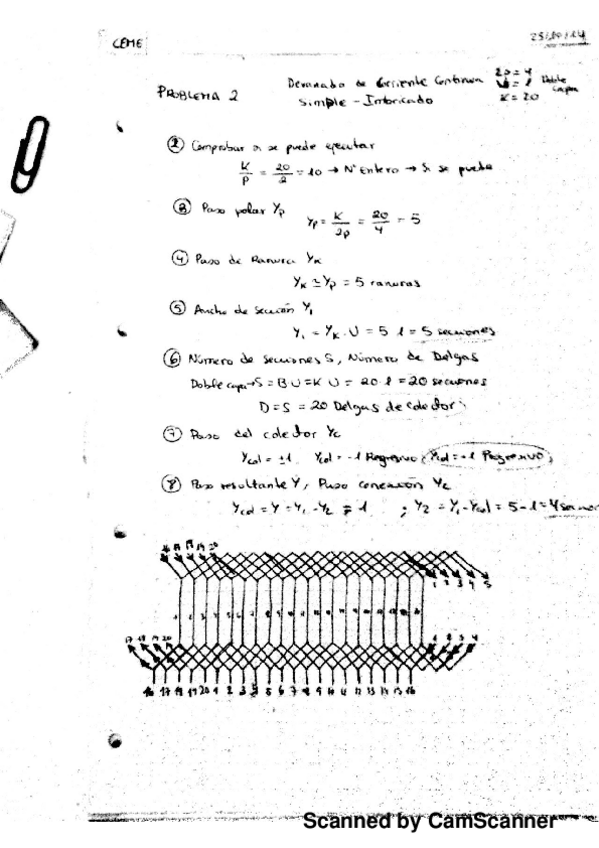 CEME
23/10/14
PROBLEMA 2
Devanado de Corriente Continua
Simple - Imbricado
2p=4
U=1
K=20
Doble Capa
② Comprobar si se puede ejecutar
K/P = 20/2 = 10 → Nº Entero → Si se puede
③ Paso polar Yp
Yp = K/2p = 20/4 = 5
④ Paso de Ranura YK
YK ≃ Yp = 5 ranuras
⑤ Ancho de sección Y1
Y1 = YK · U = 5 · 1 = 5 secciones
⑥ Número de secciones S, Número de Delgas
Doble capa → S = B U = K U = 20 · 1 = 20 secciones
D = S = 20 Delgas de colector
⑦ Paso del colector Yc
Ycol = ±1 Ycol = -1 Regresivo
⑧ Paso resultante Y, Paso conexión Y2
Ycol = Y = Y1 - Y2 = 1 ; Y2 = Y1 - Ycol = 5 - 1 = 4
16 17 18 19 20
1 2 3 4 5
17 18 19 20
1 2 3 4
16 17 18 19 20 1 2 3 4 5 6 7 8 9 10 11 12 13 14 15 16
Scanned by CamScanner